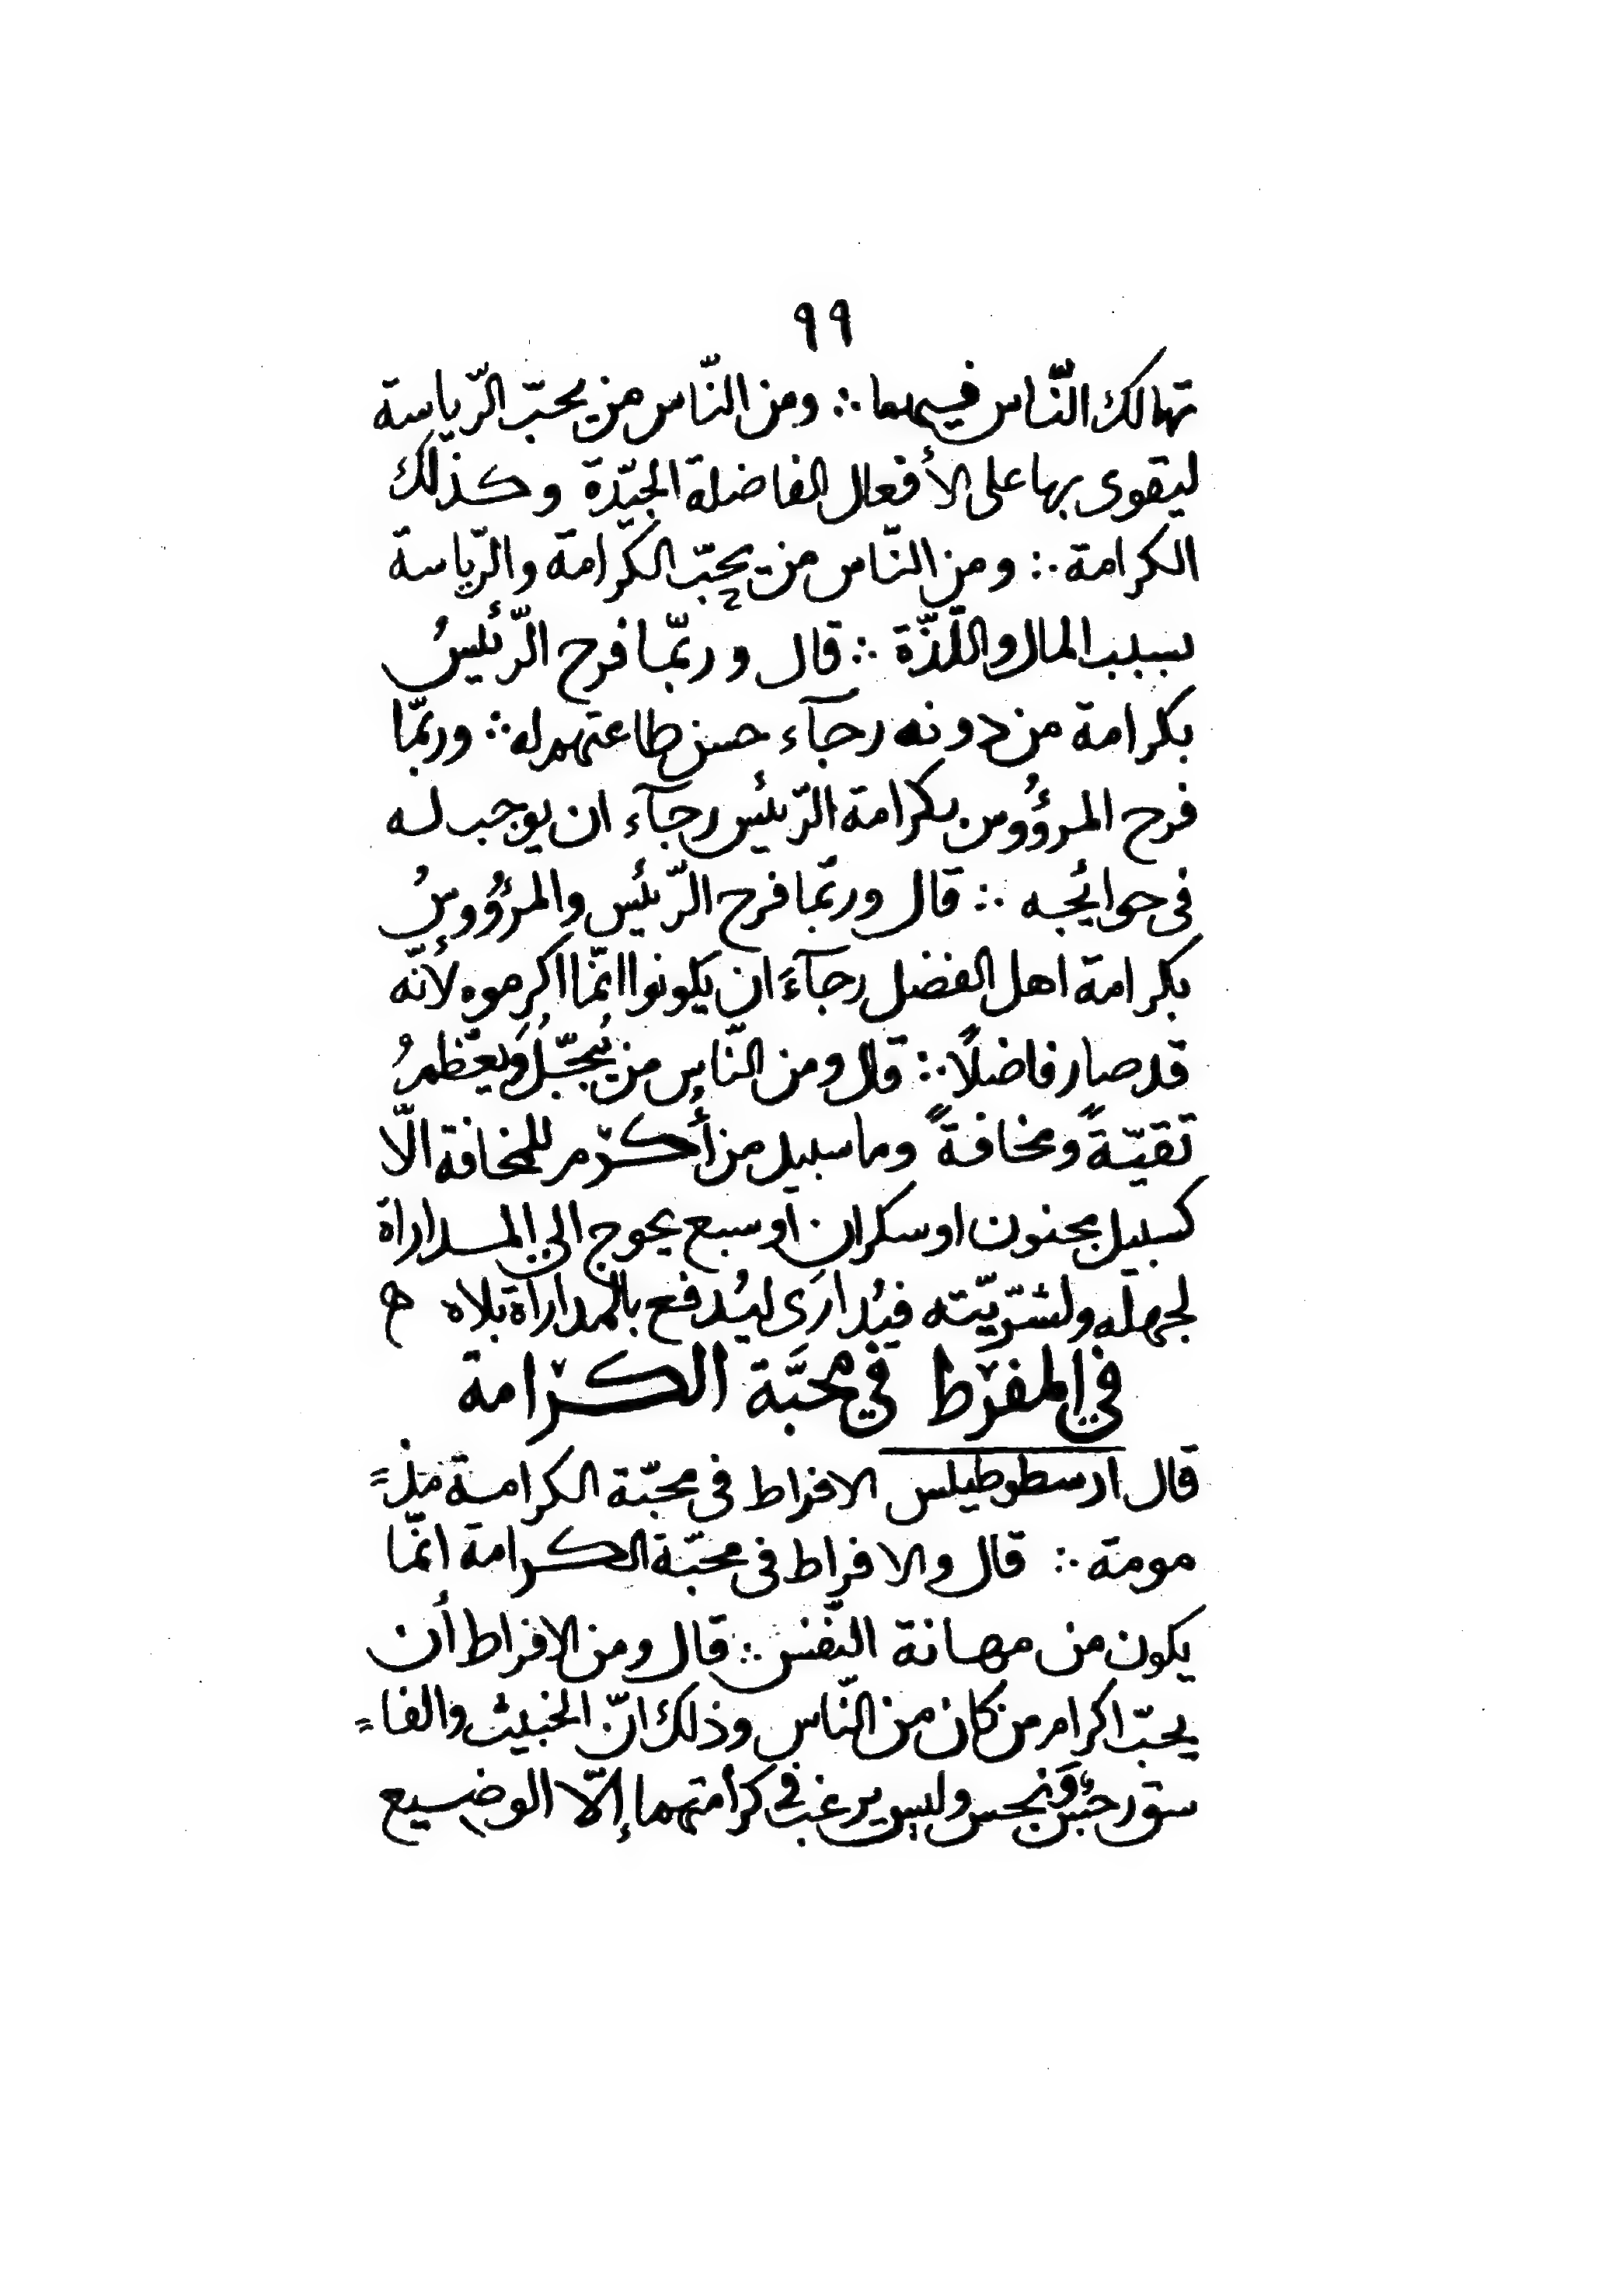 ٩٩
تهالك النّاس فيهما ∴ ومن النّاس من يحبّ الرّياسة
ليقوى بها على الأفعال الفاضلة الجيّدة وكذلك
الكرامة ∴ ومن النّاس من يحبّ الكرامة والرّياسة
بسبب المال واللّذّة ∴ قال وربّما فرح الرّئيسُ
بكرامة من دونه رجآء حسن طاعتهم له ∴ وربّما
فرح المرؤُوس بكرامة الرّئيس رجآء ان يوجب له
فى حوائجه ∴ قال وربّما فرح الرّئيس والمرؤُوسُ
بكرامة اهل الفضل رجآءَ ان يكونوا انّما اكرموه لأنّه
قد صار فاضلًا ∴ قال ومن النّاس من يُبجّلُ ويُعَظّمُ
تقيّةً ومخافةً وما سبيل من أكرم للمخافة الّا
كسبيل مجنون او سكران أو سبع يحوج الى المداراة
لجهله ولشرّيّته فيُدارَى ليُدفع بالمداراة بلاه ه
في المفرط في محبَّة الكرامة
قال ارسطوطيلس الافراط فى محبّة الكرامة مذ=
مومة ∴ قال والافراط فى محبّة الكرامة انّما
يكون من مهانة النّفس ∴ قال ومن الافراط أن
يحبّ اكرام من كان من النّاس وذلك انّ الخبيث والفا=
سق رجسٌ ونجس وليس يرغب فى كرامتهما إلّا الوضيع